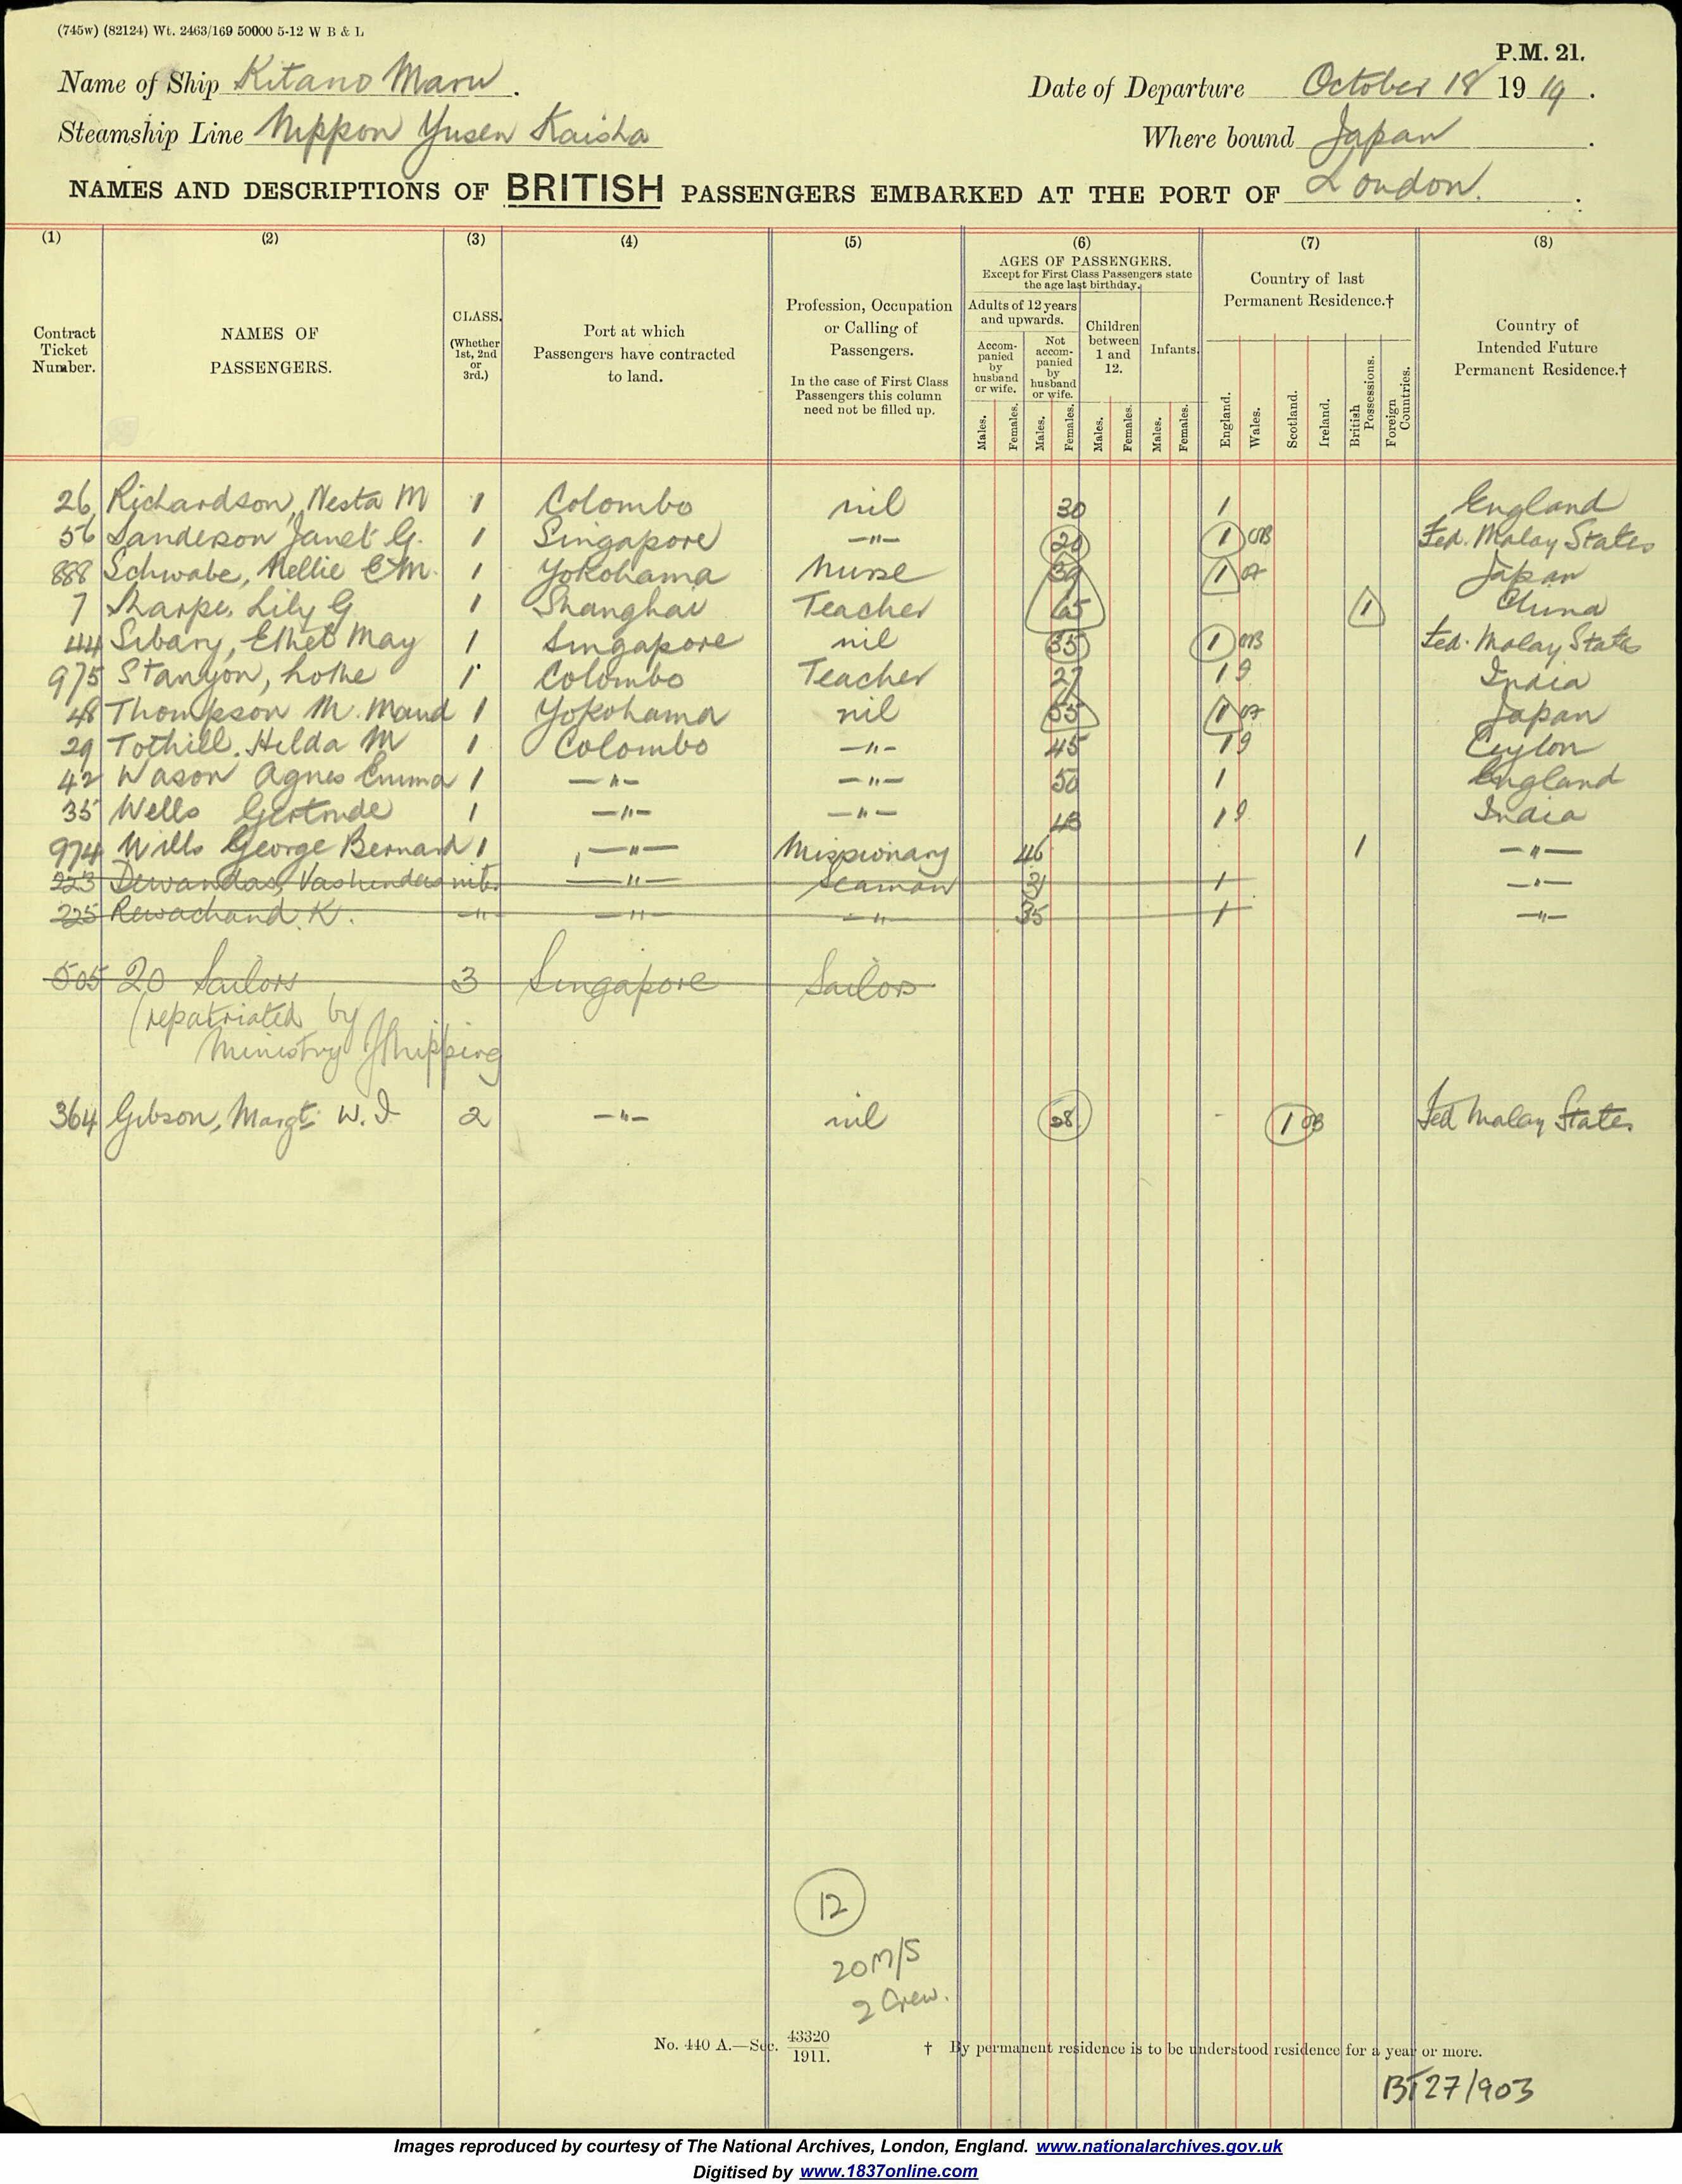 (745w) (82124) Wt. 2463/169 50000 5-12 W B & L
P.M. 21.
Name of Ship Kitano Maru. Date of Departure October 18 1919.
Steamship Line Nippon Yusen Kaisha Where bound Japan.
NAMES AND DESCRIPTIONS OF BRITISH PASSENGERS EMBARKED AT THE PORT OF London.
(1) (2) (3) (4) (5) (6) (7) (8)
Contract Ticket Number.
NAMES OF PASSENGERS.
CLASS. (Whether 1st, 2nd or 3rd.)
Port at which Passengers have contracted to land.
Profession, Occupation or Calling of Passengers.
In the case of First Class Passengers this column need not be filled up.
AGES OF PASSENGERS.
Except for First Class Passengers state the age last birthday.
Adults of 12 years and upwards.
Accompanied by husband or wife.
Not accompanied by husband or wife.
Children between 1 and 12.
Infants.
Males. Females. Males. Females. Males. Females. Males. Females.
Country of last Permanent Residence.†
England. Wales. Scotland. Ireland. British Possessions. Foreign Countries.
Country of Intended Future Permanent Residence.†
26 Richardson, Nesta M 1 Colombo nil 30 1 England
56 Sanderson Janet G. 1 Singapore —"— 1 03 Fed. Malay States
888 Schwabe, Nellie E M. 1 Yokohama Nurse 1 07 Japan
7 Sharpe, Lily G 1 Shanghai Teacher 65 1 China
44 Sibary, Ethel May 1 Singapore nil 35 1 03 Fed. Malay States
975 Stanyon, Lottie 1 Colombo Teacher 27 1 9 India
48 Thompson M. Maud 1 Yokohama nil 55 1 07 Japan
29 Tothill. Hilda M 1 Colombo —"— 45 1 9 Ceylon
42 Wason Agnes Emma 1 —"— —"— 50 1 England
35 Wells Gertrude 1 —"— —"— 43 1 9 India
974 Wills George Bernard 1 —"— Missionary 46 1 —"—
223 Dewandas, Vashindas int. —"— Seaman 31 1 —"—
225 Rewachand K. —"— —"— —"— 35 1 —"—
505 20 Sailors 3 Singapore Sailors
(repatriated by
Ministry of Shipping
364 Gibson, Margt. W. I 2 —"— nil 28 1 03 Fed Malay States
12
20 M/S
2 Crew.
No. 440 A.—Sec. 43320/1911.
† By permanent residence is to be understood residence for a year or more.
BT27/903
Images reproduced by courtesy of The National Archives, London, England. www.nationalarchives.gov.uk
Digitised by www.1837online.com